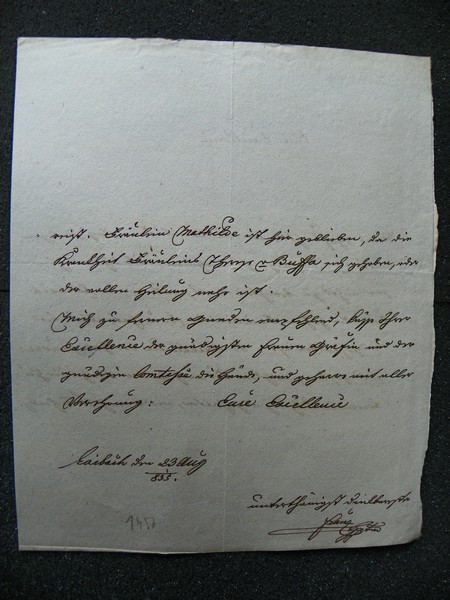 reist. Fräulein Mathilde ist hier geblieben, da die
Krankheit Fräuleins Therese v Buffa sich gehoben, oder
der vollen Heilung nahe ist.
Mich zu fernern Gnaden empfehlend, küsse Ihrer
Excellence der gnädigsten Frauen Gräfin und der
gnädigen Comtesse die Hände, und geharre mit aller
Verehrung: Eure Excellence
Laibach den 23 Aug
855.
unterthänigst dienstbarster
Franz
145